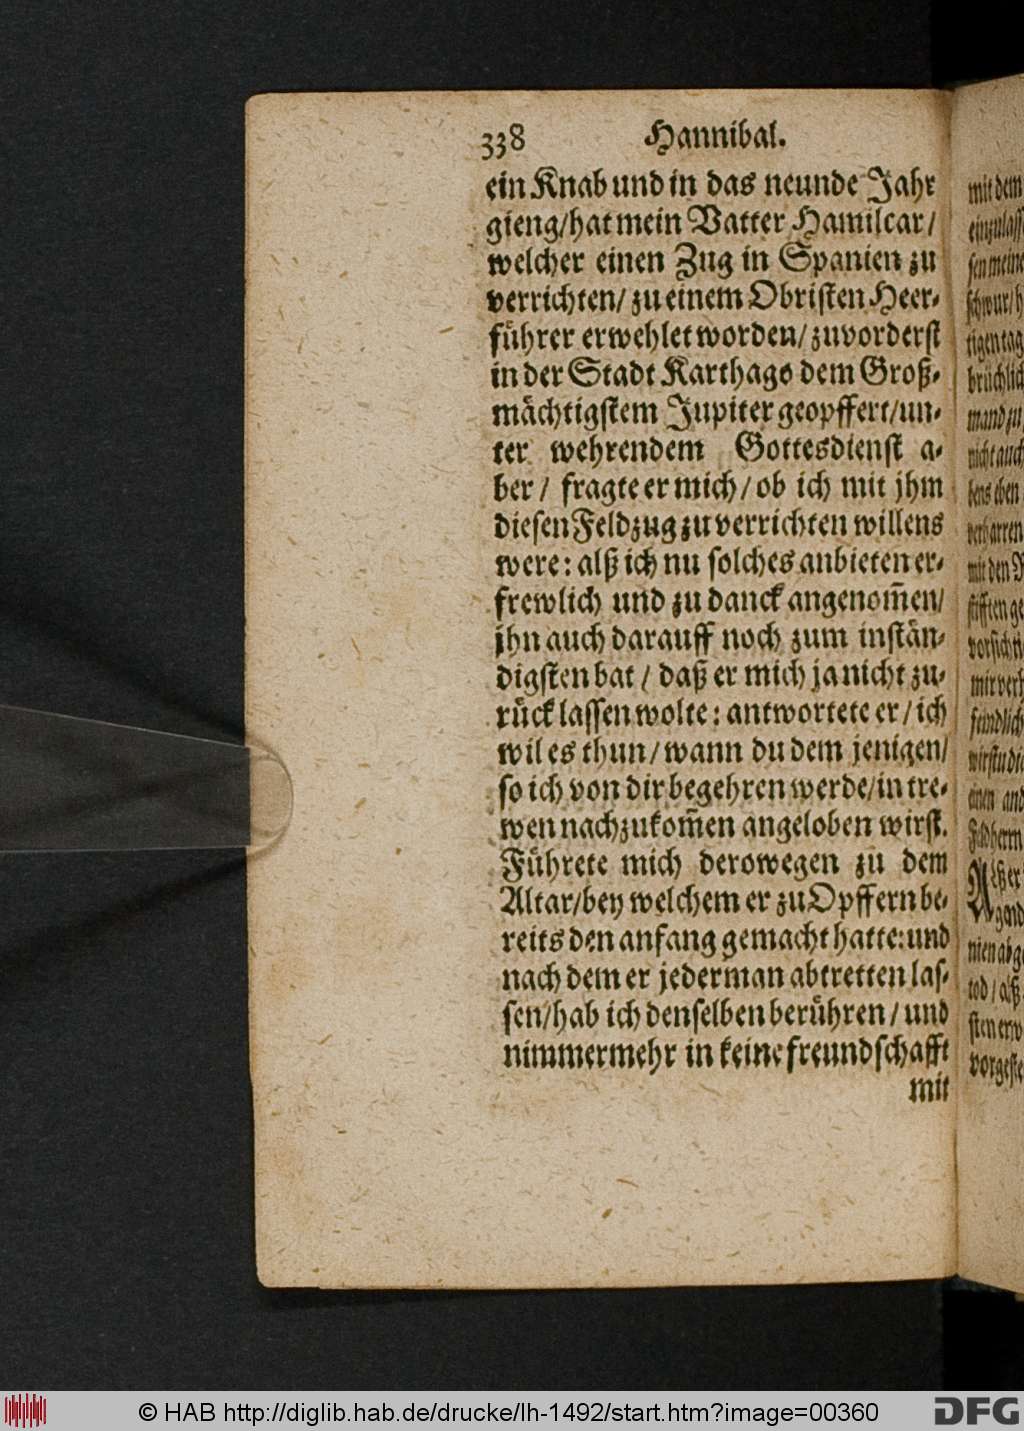 338 Hannibal.
ein Knab und in das neunde Jahr
gieng/hat mein Vatter Hamilcar/
welcher einen Zug in Spanien zu
verrichten/ zu einem Obristen Heer-
führer erwehlet worden/ zuvorderst
in der Stadt Karthago dem Groß-
mächtigstem Jupiter geopffert/un-
ter wehrendem Gottesdienst a-
ber/ fragte er mich/ ob ich mit jhm
diesen Feldzug zu verrichten willens
were: alß ich nu solches anbieten er-
frewlich und zu danck angenom̄en/
jhn auch darauff noch zum instän-
digsten bat/ daß er mich ja nicht zu-
rück lassen wolte: antwortete er/ ich
wil es thun/ wann du dem jenigen/
so ich von dir begehren werde/in tre-
wen nachzukom̄en angeloben wirst.
Führete mich derowegen zu dem
Altar/bey welchem er zu Opffern be-
reits den anfang gemacht hatte: und
nach dem er jederman abtretten las-
sen/hab ich denselben berühren/ und
nimmermehr in keine freundschafft
mit
mit dem
sen meine
schwur/h
tigen tag
brüchlich
mand zu
nicht auch
bens eben
verharren
mit den R
stifften ge
mir vers
feindlich
einen and
Feldherrn
Alß er
nien abge
tod/ alß
sten erw
vorgeste
© HAB http://diglib.hab.de/drucke/lh-1492/start.htm?image=00360
DFG